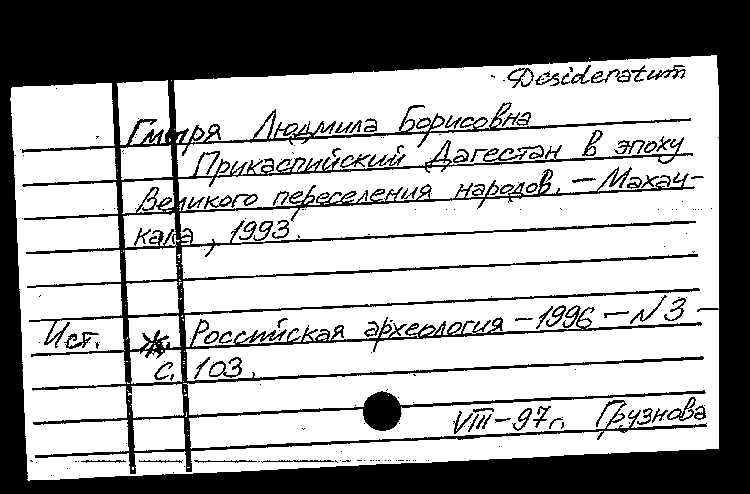 Desideratum
Гмыря Людмила Борисовна
Прикаспийский Дагестан в эпоху
Великого переселения народов. – Махач-
кала, 1993.
Ист. ж. Российская археология – 1996 – N 3 –
с. 103.
VIII – 97 г. Грузнова